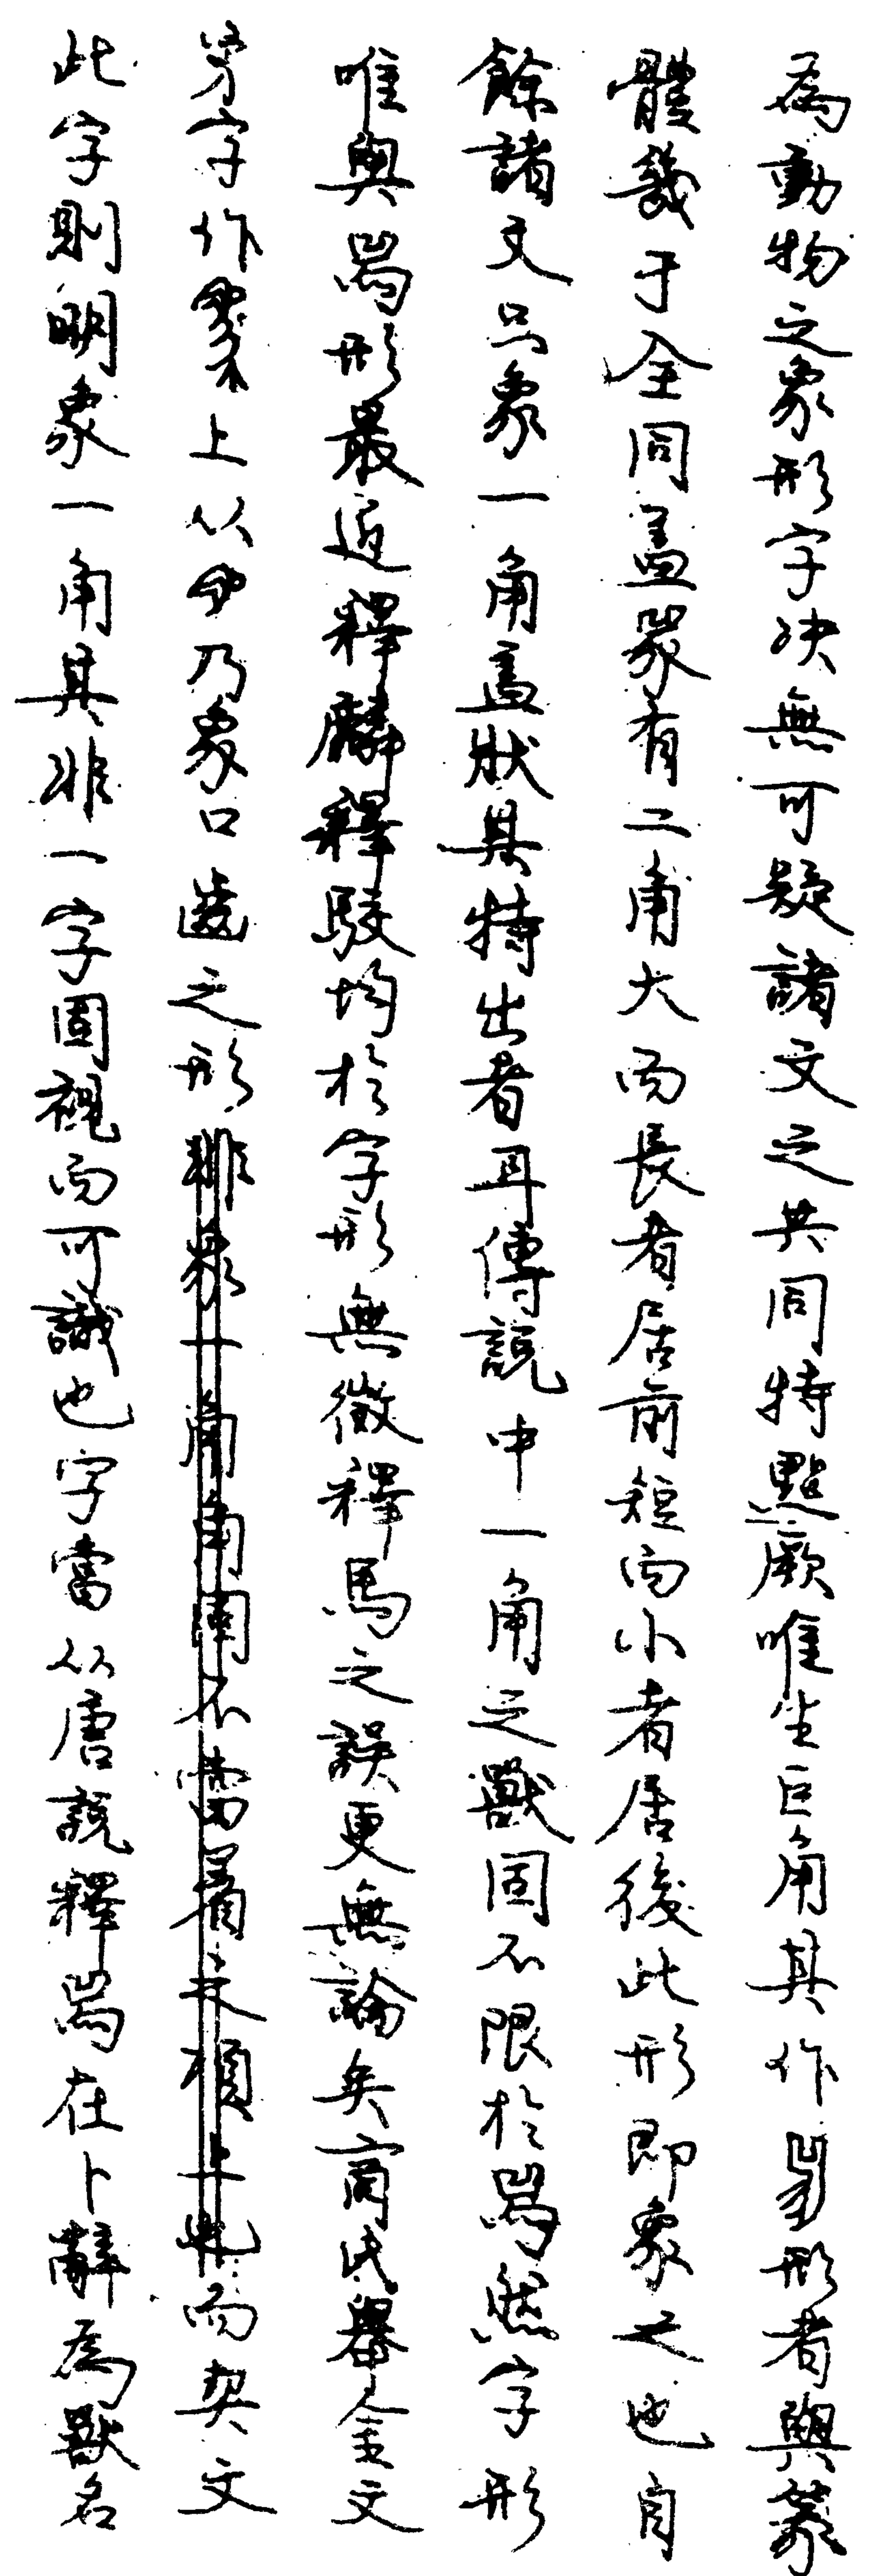 為動物之象形字決無可疑諸文之共同特點厥唯生巨角其作形者與篆
體幾于全同蓋象有二角大而長者居前短而小者居後此形即象之也自
餘諸文只象一角蓋狀其特出者耳傳說中一角之獸固不限於𤉡然字形
唯與𤉡形最近釋麟釋駁均於字形無徵釋馬之誤更無論矣商氏舉金文
字作上从乃象口齒之形非象一角角固不當著之項上也而契文
此字則明象一角其非一字固視而可識也字當从唐說釋𤉡在卜辭為獸名